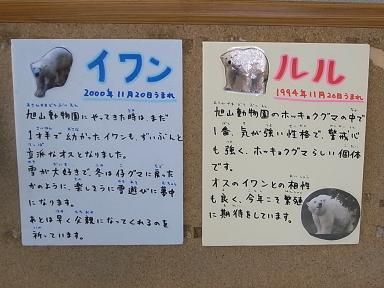 イワン
2000年11月20日うまれ
あさひやまどうぶつえん
旭山動物園にやってきた時は、まだ
1才半で幼かったイワンも、ずいぶんと
立派なオスとなりました。
雪が大好きで、冬は仔グマに戻った
かのように、楽しそうに雪遊びに夢中
になります。
あとは早く父親になってくれるのを
祈っています。
ルル
1994年11月20日うまれ
旭山動物園のホッキョクグマの中で
1番、気が強い性格で、警戒心
も強く、ホッキョクグマらしい個体
です。
オスのイワンとの相性
も良く、今年こそ繁殖
に期待をしています。